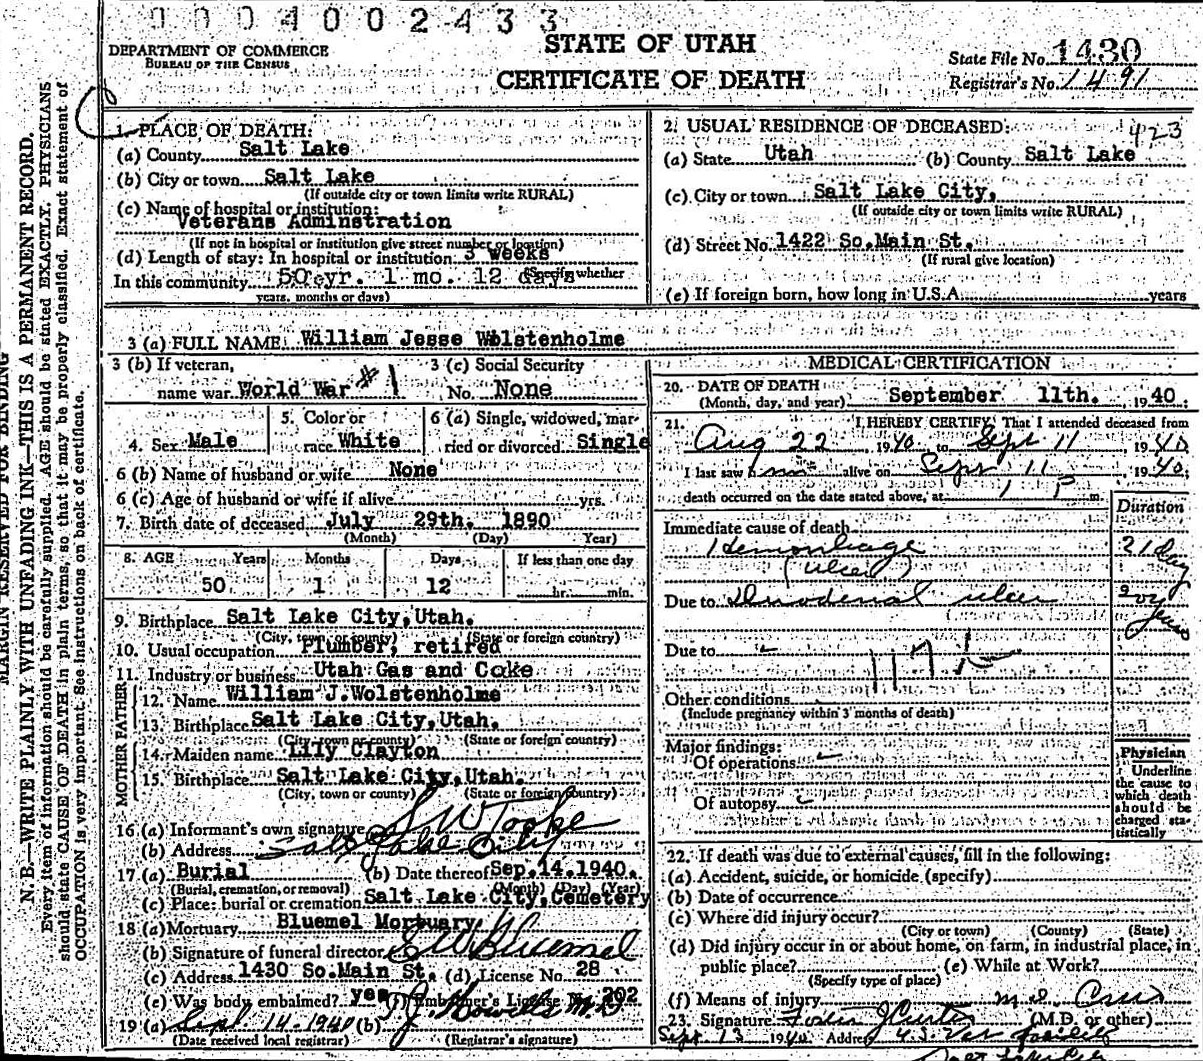 0004002433
DEPARTMENT OF COMMERCE
BUREAU OF THE CENSUS
STATE OF UTAH
CERTIFICATE OF DEATH
State File No. 1430
Registrar's No. 1491
MARGIN RESERVED FOR BINDING
N. B.—WRITE PLAINLY WITH UNFADING INK—THIS IS A PERMANENT RECORD.
Every item of information should be carefully supplied. AGE should be stated EXACTLY. PHYSICIANS
should state CAUSE OF DEATH in plain terms, so that it may be properly classified. Exact statement of
OCCUPATION is very important. See instructions on back of certificate.
1. PLACE OF DEATH:
(a) County Salt Lake
(b) City or town Salt Lake
(If outside city or town limits write RURAL)
(c) Name of hospital or institution:
Veterans Adminstration
(If not in hospital or institution give street number or location)
(d) Length of stay: In hospital or institution 3 weeks
(Specify whether
In this community 50 yr. 1 mo. 12 days
years, months or days)
2. USUAL RESIDENCE OF DECEASED: 423
(a) State Utah (b) County Salt Lake
(c) City or town Salt Lake City,
(If outside city or town limits write RURAL)
(d) Street No. 1422 So.Main St.
(If rural give location)
(e) If foreign born, how long in U.S.A. years
3 (a) FULL NAME William Jesse Wolstenholme
3 (b) If veteran,
name war World War #1
3 (c) Social Security
No. None
4. Sex Male
5. Color or
race White
6 (a) Single, widowed, mar-
ried or divorced Single
6 (b) Name of husband or wife None
6 (c) Age of husband or wife if alive yrs.
7. Birth date of deceased July 29th. 1890
(Month) (Day) Year)
8. AGE Years Months Days If less than one day
50 1 12 hr. min.
9. Birthplace Salt Lake City,Utah.
(City, town or county) (State or foreign country)
10. Usual occupation Plumber, retired
11. Industry or business Utah Gas and Coke
FATHER
12. Name William J.Wolstenholme
13. Birthplace Salt Lake City,Utah.
(City, town or county) (State or foreign country)
MOTHER
14. Maiden name Lily Clayton
15. Birthplace Salt Lake City,Utah.
(City, town or county) (State or foreign country)
16 (a) Informant's own signature S W Tooke
(b) Address Salt Lake City
17 (a) Burial (b) Date thereof Sep.14.1940.
(Burial, cremation, or removal) (Month) (Day) (Year)
(c) Place: burial or cremation Salt Lake City,Cemetery
18 (a) Mortuary Bluemel Mortuary
(b) Signature of funeral director Bluemel
(c) Address 1430 So.Main St. (d) License No. 28
(e) Was body embalmed? yes (f) Embalmer's License No. 202
19 (a) Sept. 14-1940 (b) Howells M.D
(Date received local registrar) (Registrar's signature)
MEDICAL CERTIFICATION
20. DATE OF DEATH
(Month, day, and year) September 11th. 1940.
21. I HEREBY CERTIFY That I attended deceased from
Aug 22 1940 to Sept 11 1940
I last saw him alive on Sept 11 1940,
death occurred on the date stated above, at 1 P m.
Duration
Immediate cause of death
Hemorrhage 21 day
(ulcer)
Due to Duodenal ulcer 20 years
Due to
117
Other conditions
(Include pregnancy within 3 months of death)
Major findings:
Of operations
Of autopsy
Physician
Underline
the cause to
which death
should be
charged sta-
tistically
22. If death was due to external causes, fill in the following:
(a) Accident, suicide, or homicide (specify)
(b) Date of occurrence
(c) Where did injury occur?
(City or town) (County) (State)
(d) Did injury occur in or about home, on farm, in industrial place, in
public place? (e) While at Work?
(Specify type of place)
(f) Means of injury
23. Signature Foster J Curtis (M.D. or other)
Sept 13 1940 Address U.S. Vet
Salt Lake